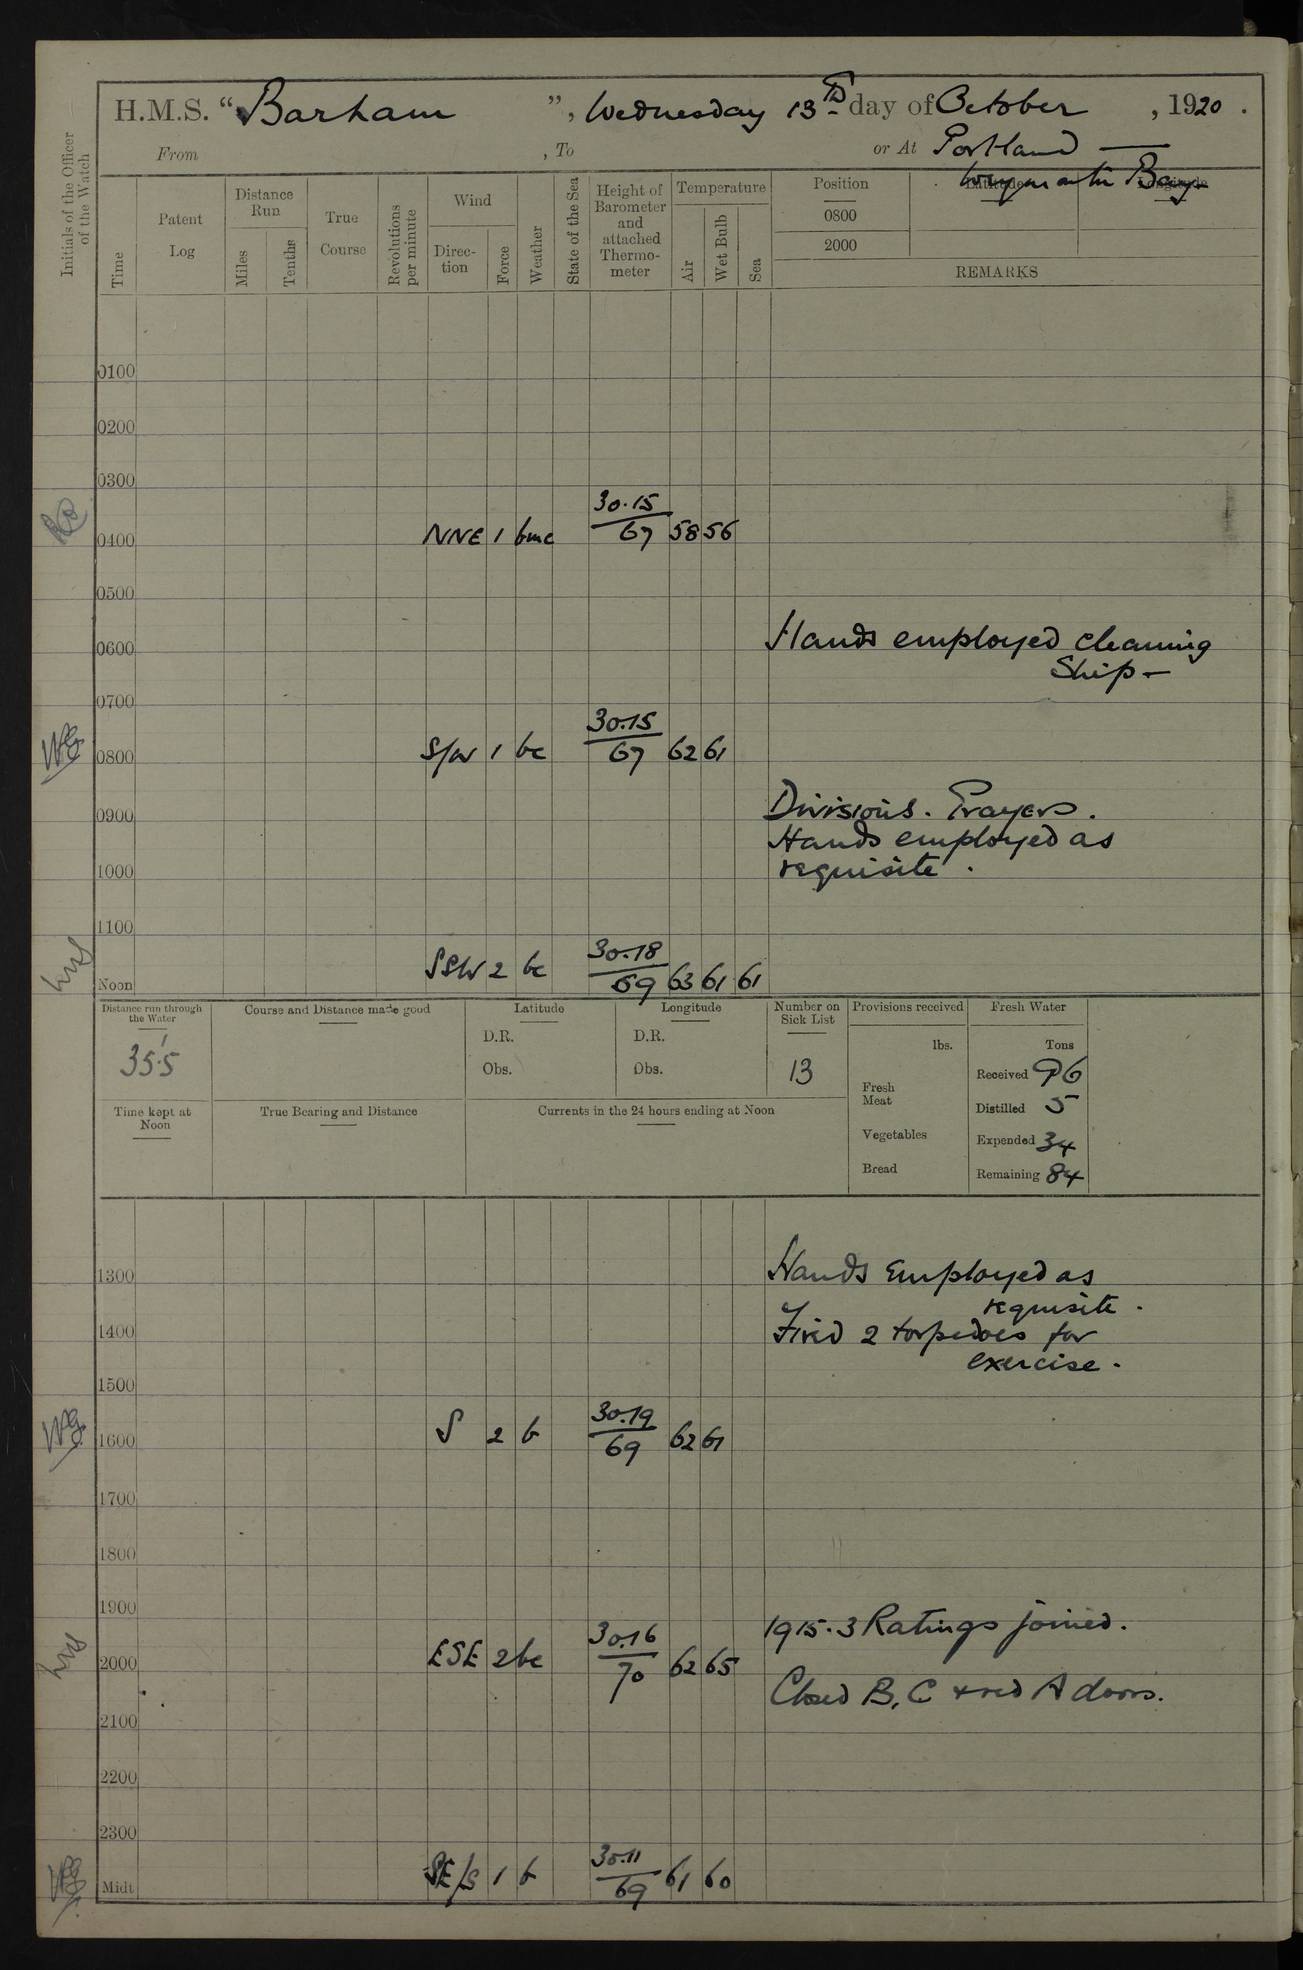 H.M.S. "Barham", Wednesday 13th day of October, 1920.
From , To or At Portland —
Weymouth Bay
Initials of the Officer of the Watch
Time
Patent Log
Distance Run
Miles
Tenths
True Course
Revolutions per minute
Wind
Direc-tion
Force
Weather
State of the Sea
Height of Barometer and attached Thermo-meter
Temperature
Air
Wet Bulb
Sea
Position
Latitude
Longitude
0800
2000
REMARKS
0100
0200
0300
30.15
0400 NNE 1 bmc 67 58 56
0500
0600 Hands employed cleaning
Ship –
0700
30.15
0800 S/W 1 bc 67 62 61
0900 Divisions. Prayers.
Hands employed as
1000 requisite.
1100
30.18
Noon SSW 2 bc 69 63 61 61
Distance run through the Water
35.5
Course and Distance made good
Latitude
D.R.
Obs.
Longitude
D.R.
Obs.
Number on Sick List
13
Provisions received
lbs.
Fresh Meat
Vegetables
Bread
Fresh Water
Tons
Received 96
Distilled 5
Expended 34
Remaining 84
Time kept at Noon
True Bearing and Distance
Currents in the 24 hours ending at Noon
1300 Hands Employed as
requisite.
1400 Fired 2 torpedoes for
exercise.
1500
30.19
1600 S 2 b 69 62 61
1700
1800
1900 1915. 3 Ratings joined.
30.16
2000 ESE 2 bc 70 62 65
Closed B, C & red A doors.
2100
2200
2300
30.11
Midt SE/S 1 b 69 61 60